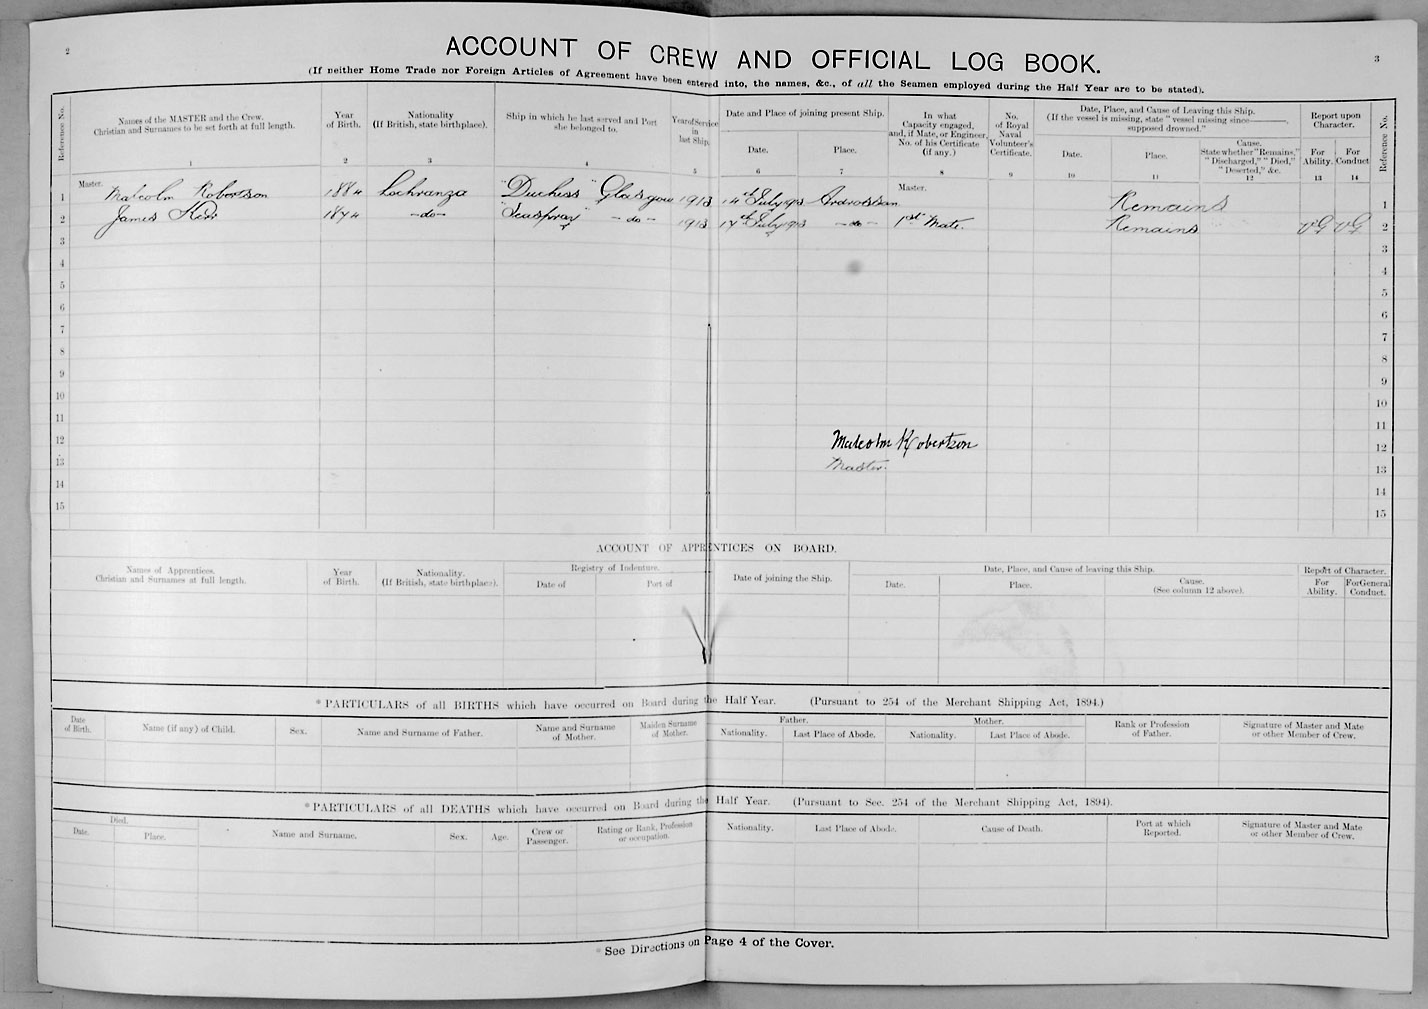 2
3
ACCOUNT OF CREW AND OFFICIAL LOG BOOK.
(If neither Home Trade nor Foreign Articles of Agreement have been entered into, the names, &c., of all the Seamen employed during the Half Year are to be stated).
Reference No.
Names of the MASTER and the Crew.
Christian and Surnames to be set forth at full length.
1
Year
of Birth.
2
Nationality
(If British, state birthplace).
3
Ship in which he last served and Port
she belonged to.
4
Year of Service
in
last Ship.
5
Date and Place of joining present Ship.
Date.
6
Place.
7
In what
Capacity engaged,
and, if Mate, or Engineer,
No. of his Certificate
(if any.)
8
No.
of Royal
Naval
Volunteer's
Certificate.
9
Date, Place, and Cause of Leaving this Ship.
(If the vessel is missing, state "vessel missing since———,
supposed drowned."
Date.
10
Place.
11
Cause.
State whether "Remains,"
"Discharged," "Died,"
"Deserted," &c.
12
Report upon
Character.
For
Ability.
13
For
Conduct
14
Reference No.
Master.
Master.
1 Malcolm Robertson 1884 Lochranza "Duchess" Glasgow 1913 14th July 1913 Ardrossan Remains 1
2 James Kerr 1874 -do- "Seaspray" -do- 1913 17th July 1913 -do- 1st Mate. Remains VG VG 2
3 3
4 4
5 5
6 6
7 7
8 8
9 9
10 10
11 11
12 Malcolm Robertson 12
13 Master. 13
14 14
15 15
ACCOUNT OF APPRENTICES ON BOARD.
Names of Apprentices.
Christian and Surnames at full length.
Year
of Birth.
Nationality.
(If British, state birthplace).
Registry of Indenture.
Date of
Port of
Date of joining the Ship.
Date, Place, and Cause of leaving this Ship.
Date.
Place.
Cause.
(See column 12 above).
Report of Character.
For
Ability.
For General
Conduct.
* PARTICULARS of all BIRTHS which have occurred on Board during the Half Year. (Pursuant to 254 of the Merchant Shipping Act, 1894.)
Date
of Birth.
Name (if any) of Child.
Sex.
Name and Surname of Father.
Name and Surname
of Mother.
Maiden Surname
of Mother.
Father.
Nationality.
Last Place of Abode.
Mother.
Nationality.
Last Place of Abode.
Rank or Profession
of Father.
Signature of Master and Mate
or other Member of Crew.
* PARTICULARS of all DEATHS which have occurred on Board during the Half Year. (Pursuant to Sec. 254 of the Merchant Shipping Act, 1894).
Died.
Date.
Place.
Name and Surname.
Sex.
Age.
Crew or
Passenger.
Rating or Rank, Profession
or occupation.
Nationality.
Last Place of Abode.
Cause of Death.
Port at which
Reported.
Signature of Master and Mate
or other Member of Crew.
* See Directions on Page 4 of the Cover.